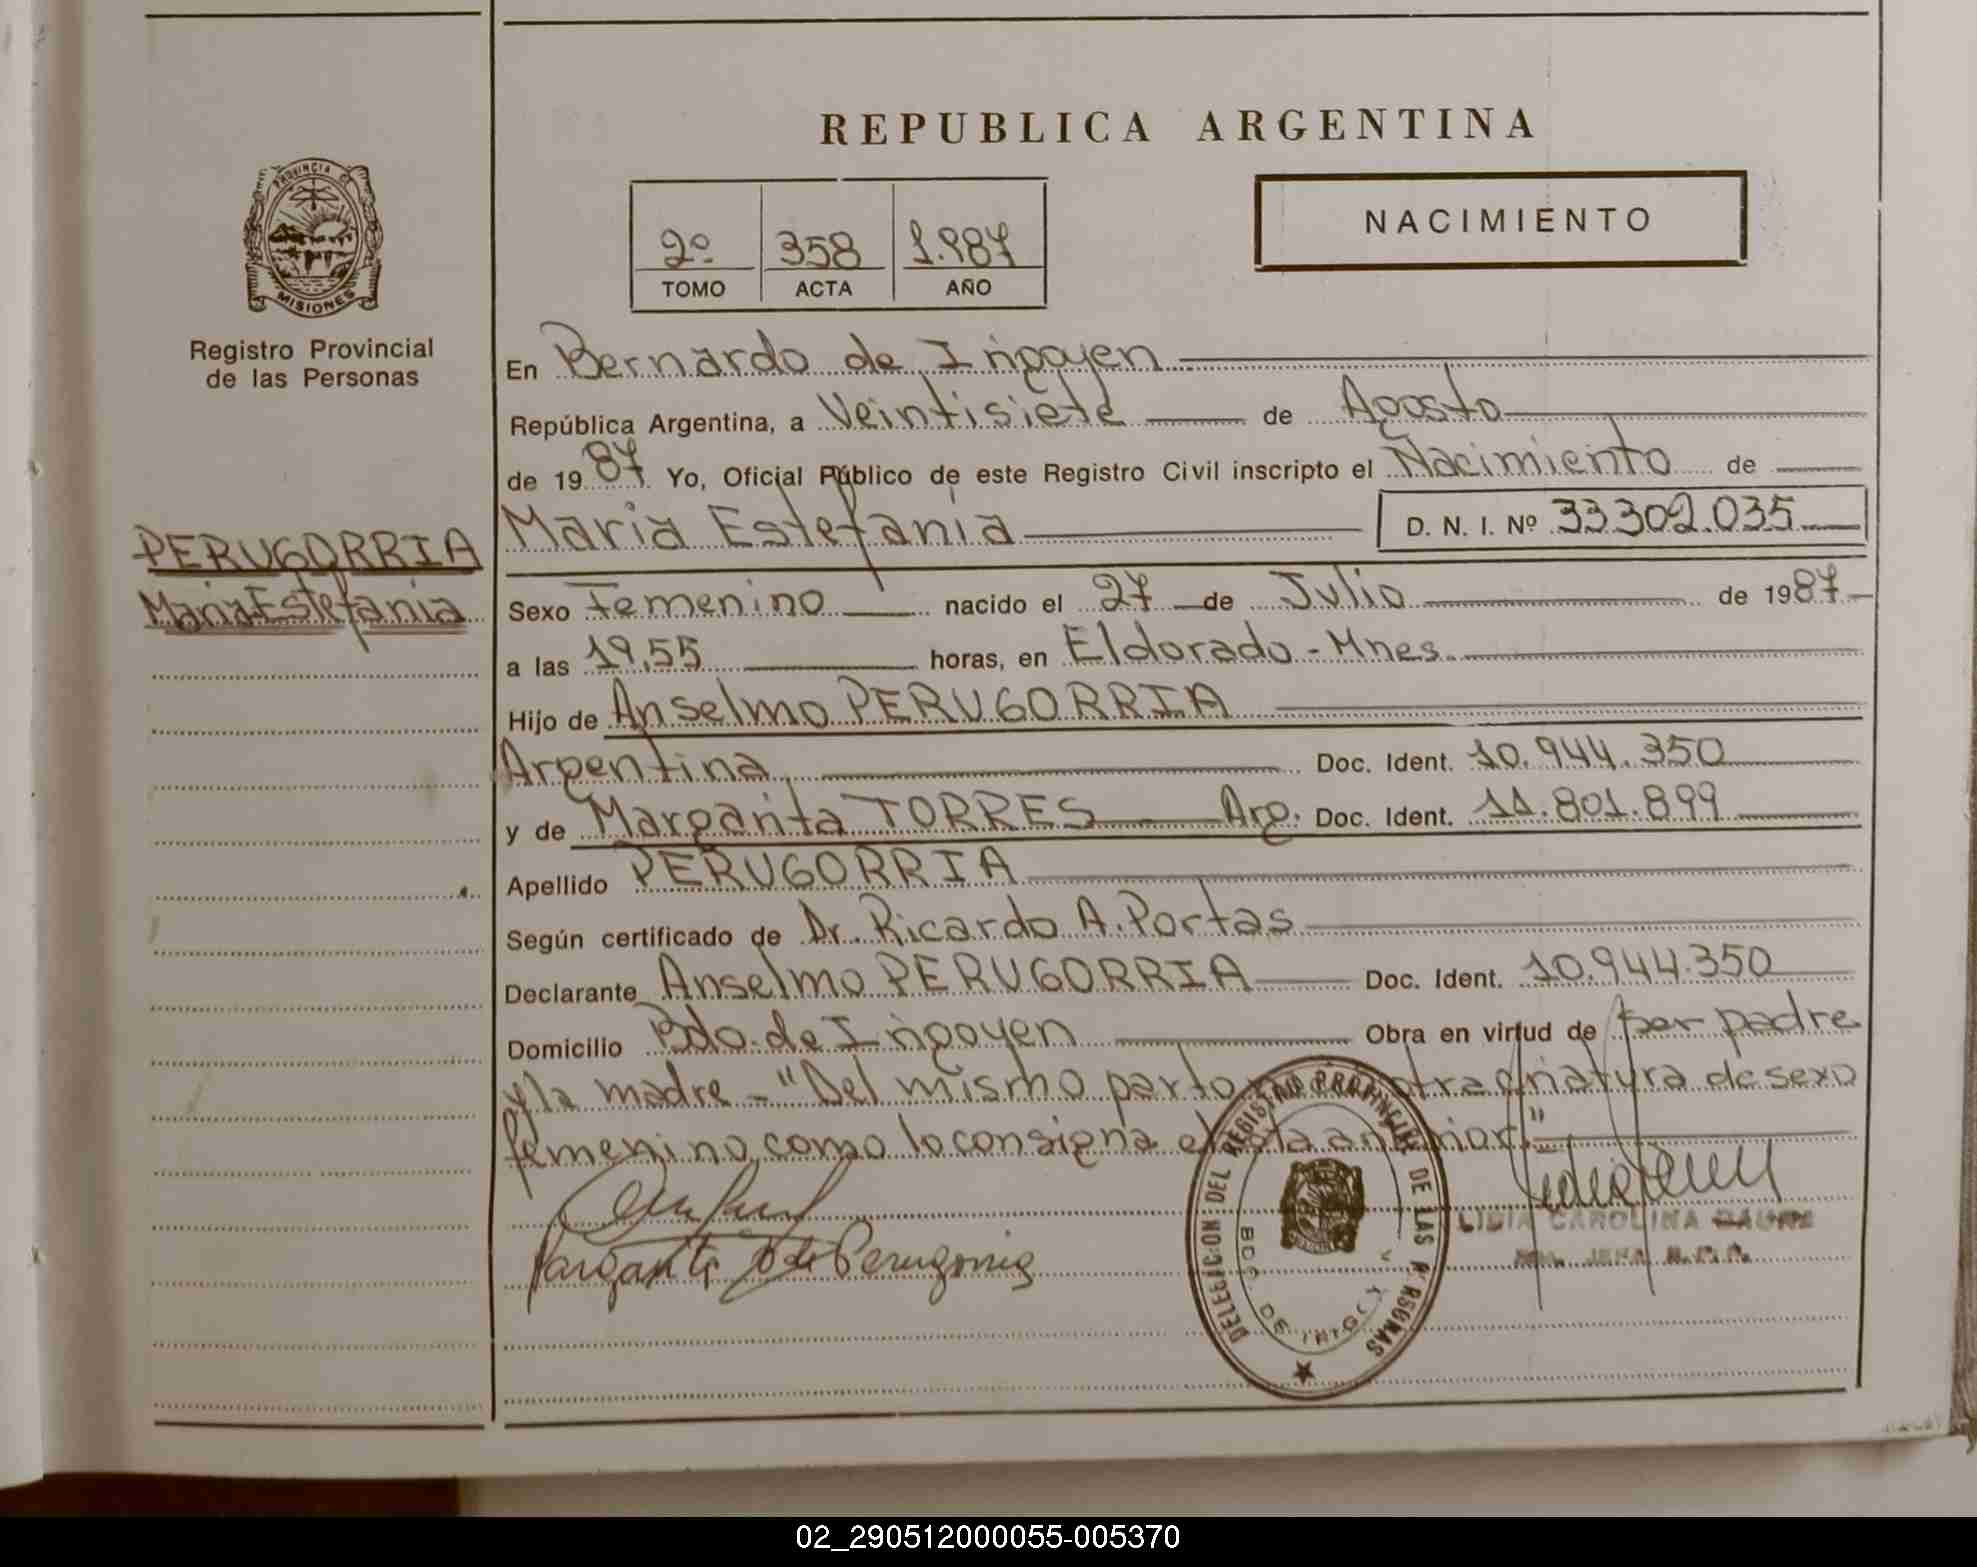 REPUBLICA ARGENTINA
PROVINCIA DE
MISIONES
Registro Provincial
de las Personas
2º 358 1.987
TOMO ACTA AÑO
NACIMIENTO
En Bernardo de Irigoyen
República Argentina, a Veintisiete de Agosto
de 1987 Yo, Oficial Público de este Registro Civil inscripto el Nacimiento de
PERUGORRIA
Maria Estefania
Maria Estefania D. N. I. Nº 33302.035
Sexo Femenino nacido el 27 de Julio de 1987
a las 19,55 horas, en Eldorado - Mnes.
Hijo de Anselmo PERUGORRIA
Argentina Doc. Ident. 10.944.350
y de Margarita TORRES Arg. Doc. Ident. 11.801.899
Apellido PERUGORRIA
Según certificado de Dr. Ricardo A. Portas
Declarante Anselmo PERUGORRIA Doc. Ident. 10.944.350
Domicilio Bdo. de Irigoyen Obra en virtud de ser padre
y la madre - "Del mismo parto otra criatura de sexo
femenino como lo consigna el acta anterior."
Margarita de Perugorria
DELEGACION DEL REGISTRO PROVINCIAL DE LAS PERSONAS
BDO. DE IRIGOYEN
LIDIA CAROLINA
02_290512000055-005370